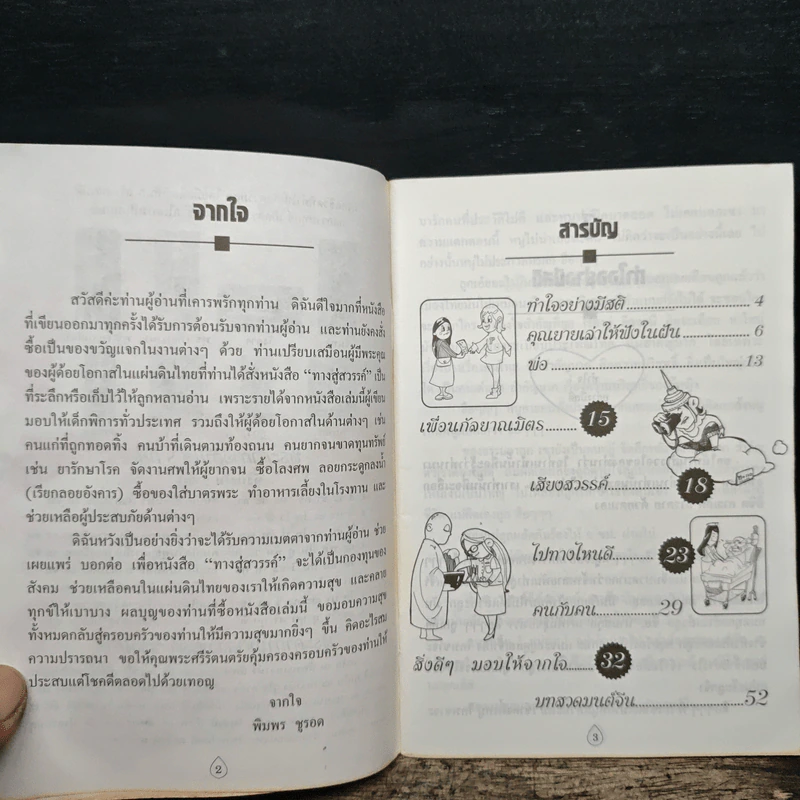 จากใจ
สวัสดีค่ะท่านผู้อ่านที่เคารพรักทุกท่าน ดิฉันดีใจมากที่หนังสือ
ที่เขียนออกมาทุกครั้งได้รับการต้อนรับจากท่านผู้อ่าน และท่านยังคงสั่ง
ซื้อเป็นของขวัญแจกในงานต่างๆ ด้วย ท่านเปรียบเสมือนผู้มีพระคุณ
ของผู้ด้อยโอกาสในแผ่นดินไทยที่ท่านได้สั่งหนังสือ “ทางสู่สวรรค์” เป็น
ที่ระลึกหรือเก็บไว้ให้ลูกหลานอ่าน เพราะรายได้จากหนังสือเล่มนี้ผู้เขียน
มอบให้เด็กพิการทั่วประเทศ รวมถึงให้ผู้ด้อยโอกาสในด้านต่างๆ เช่น
คนแก่ที่ถูกทอดทิ้ง คนบ้าที่เดินตามท้องถนน คนยากจนขาดทุนทรัพย์
เช่น ยารักษาโรค จัดงานศพให้ผู้ยากจน ซื้อโลงศพ ลอยกระดูกลงน้ำ
(เรียกลอยอังคาร) ซื้อของใส่บาตรพระ ทำอาหารเลี้ยงในโรงทาน และ
ช่วยเหลือผู้ประสบภัยด้านต่างๆ
ดิฉันหวังเป็นอย่างยิ่งว่าจะได้รับความเมตตาจากท่านผู้อ่าน ช่วย
เผยแพร่ บอกต่อ เพื่อหนังสือ “ทางสู่สวรรค์” จะได้เป็นกองทุนของ
สังคม ช่วยเหลือคนในแผ่นดินไทยของเราให้เกิดความสุข และคลาย
ทุกข์ให้เบาบาง ผลบุญของท่านที่ซื้อหนังสือเล่มนี้ ขอมอบความสุข
ทั้งหมดกลับสู่ครอบครัวของท่านให้มีความสุขมากยิ่งๆ ขึ้น คิดอะไรสม
ความปรารถนา ขอให้คุณพระศรีรัตนตรัยคุ้มครองครอบครัวของท่านให้
ประสบแต่โชคดีตลอดไปด้วยเทอญ
จากใจ
พิมพร ชูรอต
2
สารบัญ
ทำใจอย่างมีสติ 4
คุณยายเล่าให้ฟังในฝัน 6
พ่อ 13
เพื่อนกัลยาณมิตร 15
เสียงสวรรค์ 18
ไปทางไหนดี 23
คนกับคน 29
สิ่งดีๆ มอบให้จากใจ 32
บทสวดมนต์จีน 52
3